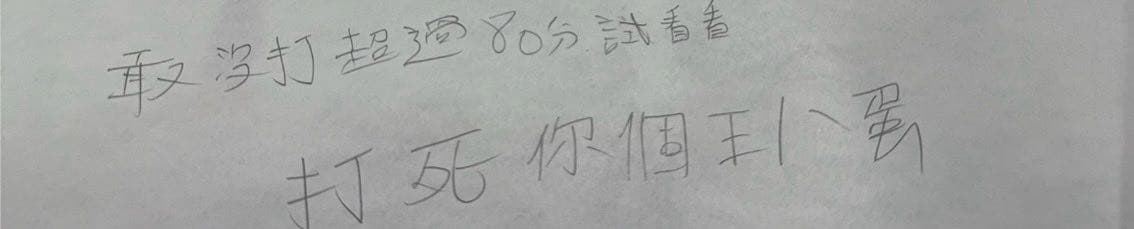 敢沒打超過80分試看看
打死你個王八蛋